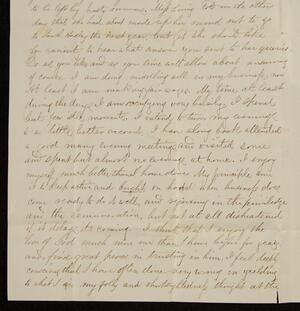 to be left by last summer. Mrs Loring told me the other
day that she had about made up her mind not to go
to South Hadley the next year, but at the shall take
no cannot to hear what answer you sent to her queries
Do as you like and as you time will allow about answering
of course I am doing something well in my business, now
At least I am making fair wages. My time at least
during the day, I am occupying very busily. I spend
but few idle moments. I intend to turn my evenings
to a better account. I have along back attended
a good many evening meetings, and visited some
and spent but almost no evenings at home. I enjoy
myself much better than I home does. My principle aim
is to keep active and on hand when business does
come ready to do it well, and rejoicing in the privilege
and the remuneration, but not at all disheartened
if it delays its coming. I think that I enjoy the
love of God much more than I have before for years
and find great peace in trusting in him. I feel deeply
conscious that I have often done very wrong in yielding
to what I saw my folly and shortsightedness thought at the